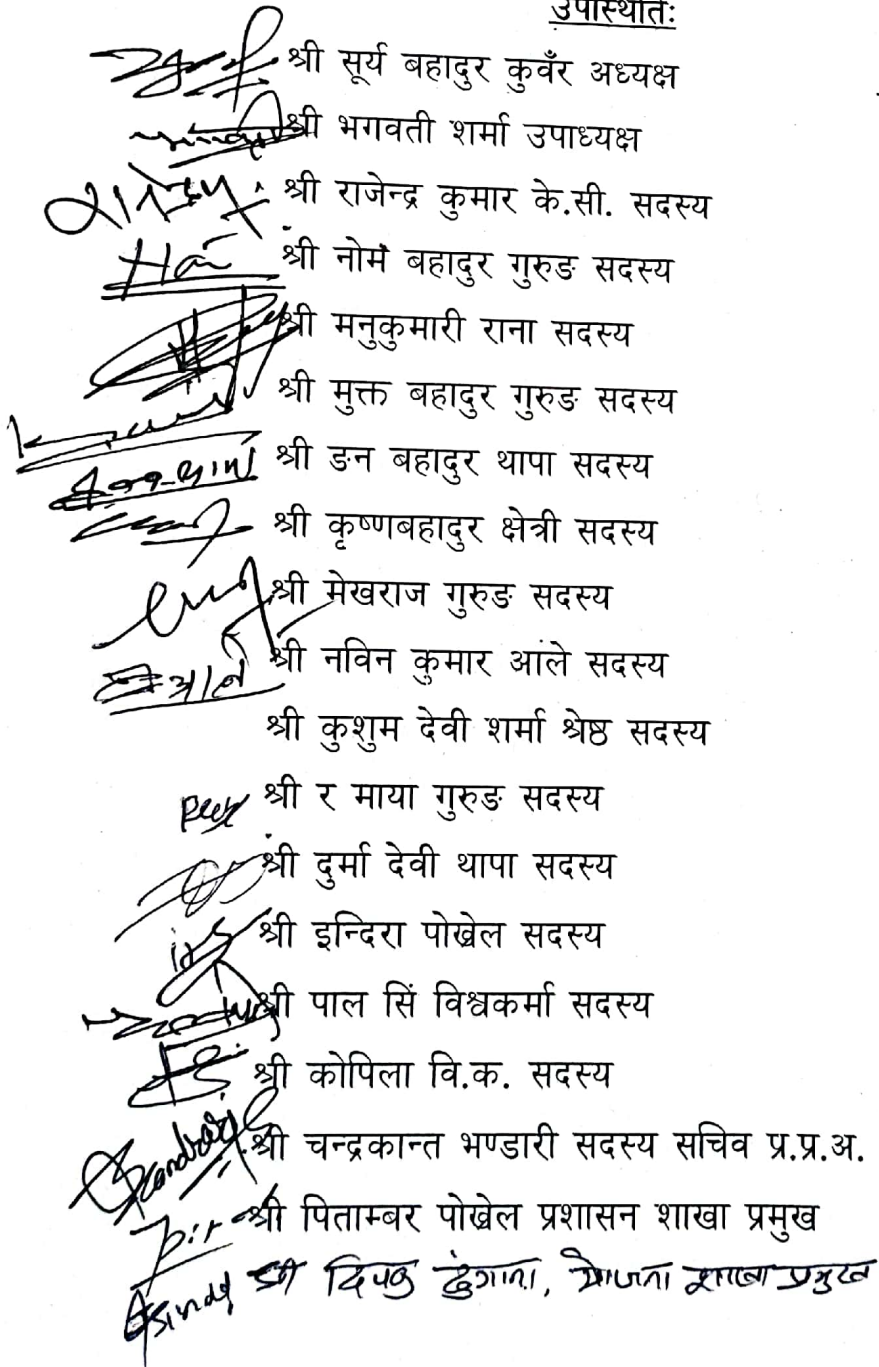 उपस्थितिः
श्री सूर्य बहादुर कुवँर अध्यक्ष
श्री भगवती शर्मा उपाध्यक्ष
श्री राजेन्द्र कुमार के.सी. सदस्य
श्री नोम बहादुर गुरुङ सदस्य
श्री मनुकुमारी राना सदस्य
श्री मुक्त बहादुर गुरुङ सदस्य
श्री ङन बहादुर थापा सदस्य
श्री कृष्णबहादुर क्षेत्री सदस्य
श्री मेखराज गुरुङ सदस्य
श्री नविन कुमार आले सदस्य
श्री कुशुम देवी शर्मा श्रेष्ठ सदस्य
श्री र माया गुरुङ सदस्य
श्री दुर्मा देवी थापा सदस्य
श्री इन्दिरा पोख्रेल सदस्य
श्री पाल सिं विश्वकर्मा सदस्य
श्री कोपिला वि.क. सदस्य
श्री चन्द्रकान्त भण्डारी सदस्य सचिव प्र.प्र.अ.
श्री पिताम्बर पोख्रेल प्रशासन शाखा प्रमुख
श्री दिपक ढुंगाना, योजना शाखा प्रमुख